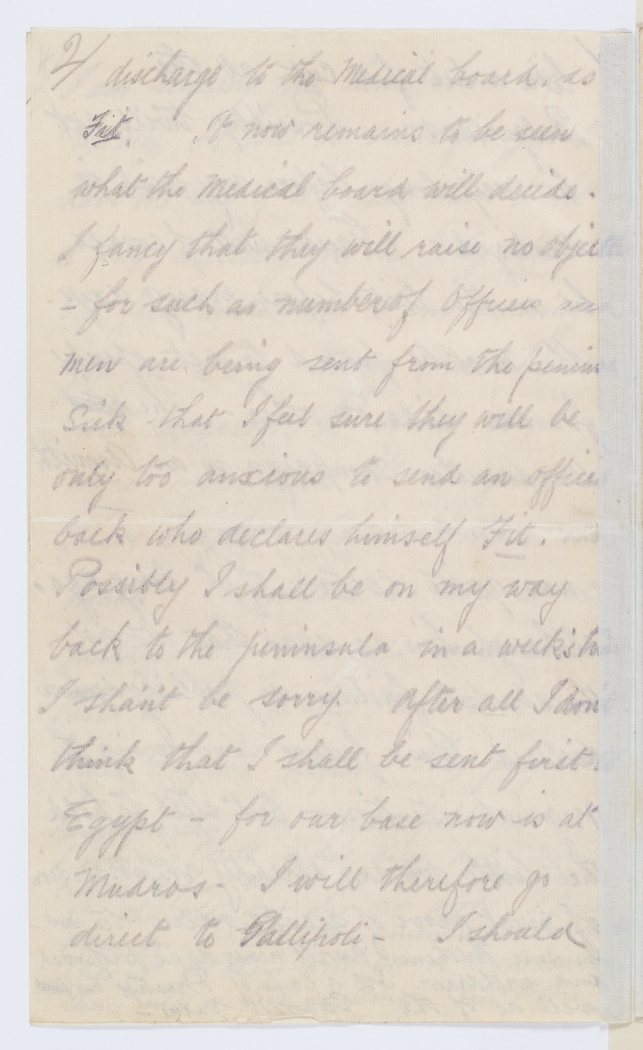 2/ discharge to the Medical board. as
Fit. It now remains to be seen
what the Medical board will decide.
I fancy that they will raise no objec
- for such as number of Officers
men are being sent from the penins
Sick that I feel sure they will be
only too anxious to send an office
back who declares himself Fit.
Possibly I shall be on my way
back to the peninsula in a week's
I shan't be sorry. After all I don
think that I shall be sent first
Egypt - for our base now is at
Mudros - I will therefore go
direct to Gallipoli - I should